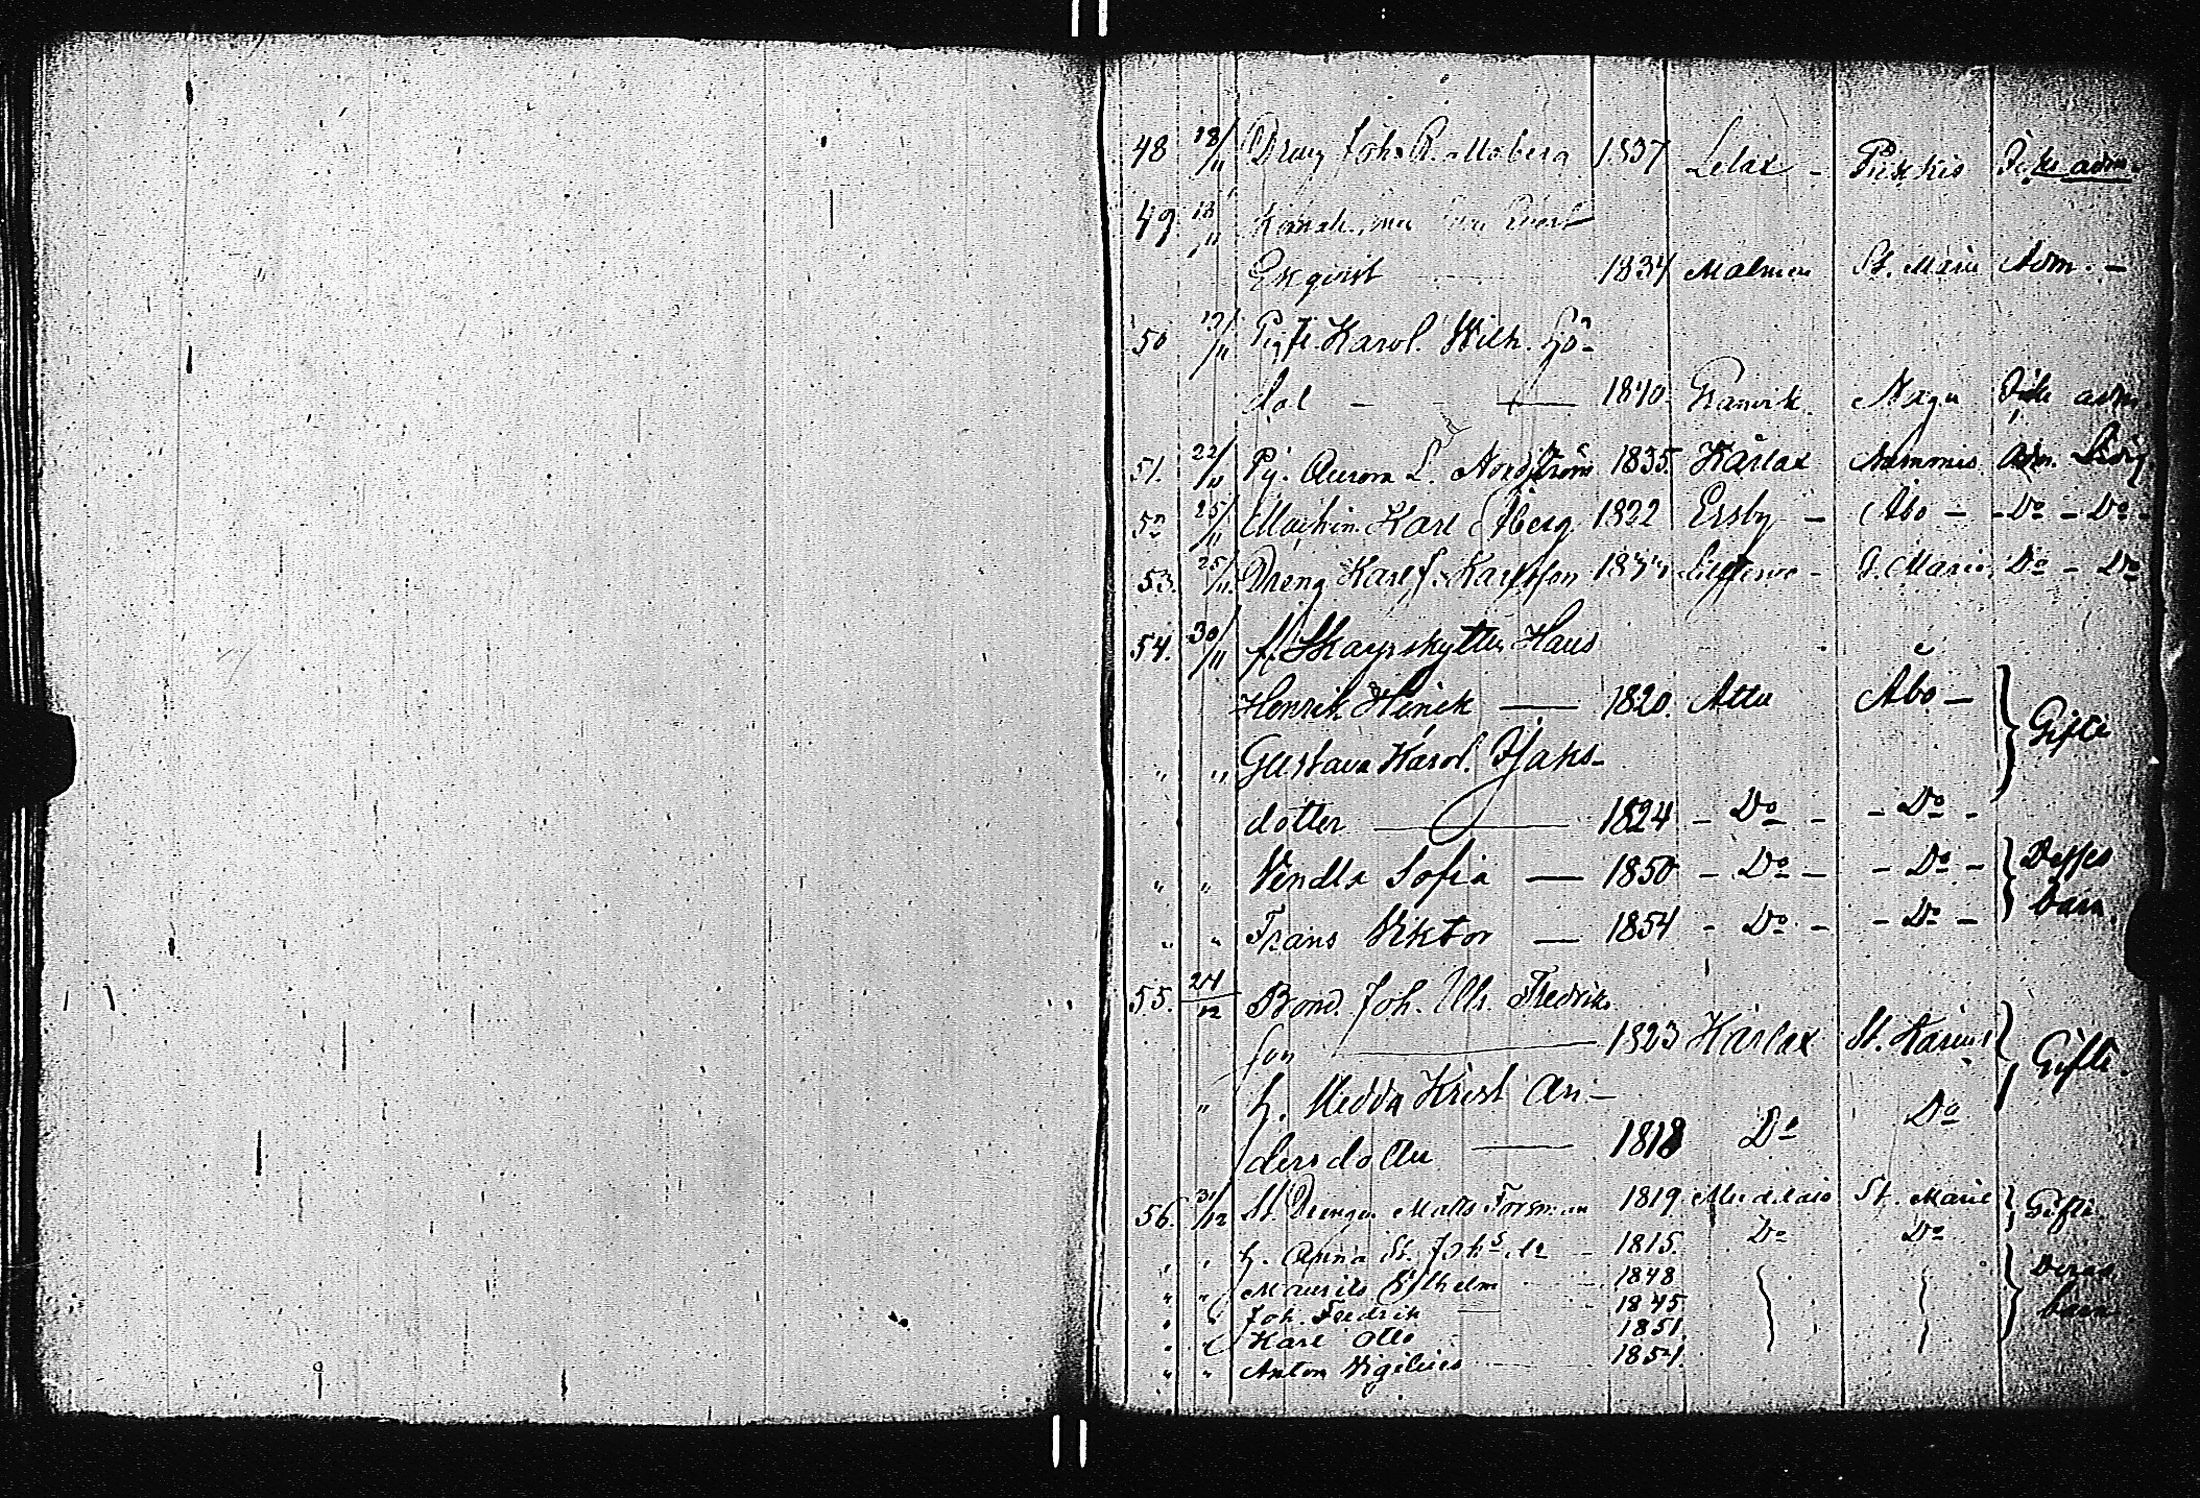 48 18/11 Dräng Joh. R. Malmberg 1837 Lelax - Piikkis Icke adm.
49 18/11
Ekqvist 1834 Malmen St. Marie Adm. -
50 /11 Pig. Karol. Wilh. Sö-
dal - 1840 Granvik Nagu Icke adm
51. 22/11 Pig. Aurora L. Nordström 1835 Kårlax Nummis Adm. Ledig
52 25/11 Machin. Karl Åberg 1822 Ersby - Åbo - - Do - Do -
53. 25/11 Dräng Karl J. Karlsson St. Marie Do - Do
54. 30/11 f. Skarpskytten Hans
Henrik Hinek — 1820. Attu Åbo - } Gifte
" " Gustava Karol. Isaks-
dotter — 1824 - Do - - Do -
" " Vendla Sofia — 1850 - Do - - Do - } Desses
" " Frans Viktor — 1854 - Do - - Do - barn.
55. 24/12 Bond. Joh. Ulr. Fredriks
son — 1823 Kårlax St. Karins } Gifte.
" h. Hedda Krist An-
dersdotter — 1818 Do Do
56. 31/12 St. Drengen Matts Forsman 1819. Muddais St. Marie } Gifte
" " h. Anna St. Johsdr - 1815. Do Do
" " Maurits Vilhelm 1848 } Deras
" " Joh. Fredrik 1845 barn
" " Karl Otto 1851.
" " Anton Vigilius 1854.